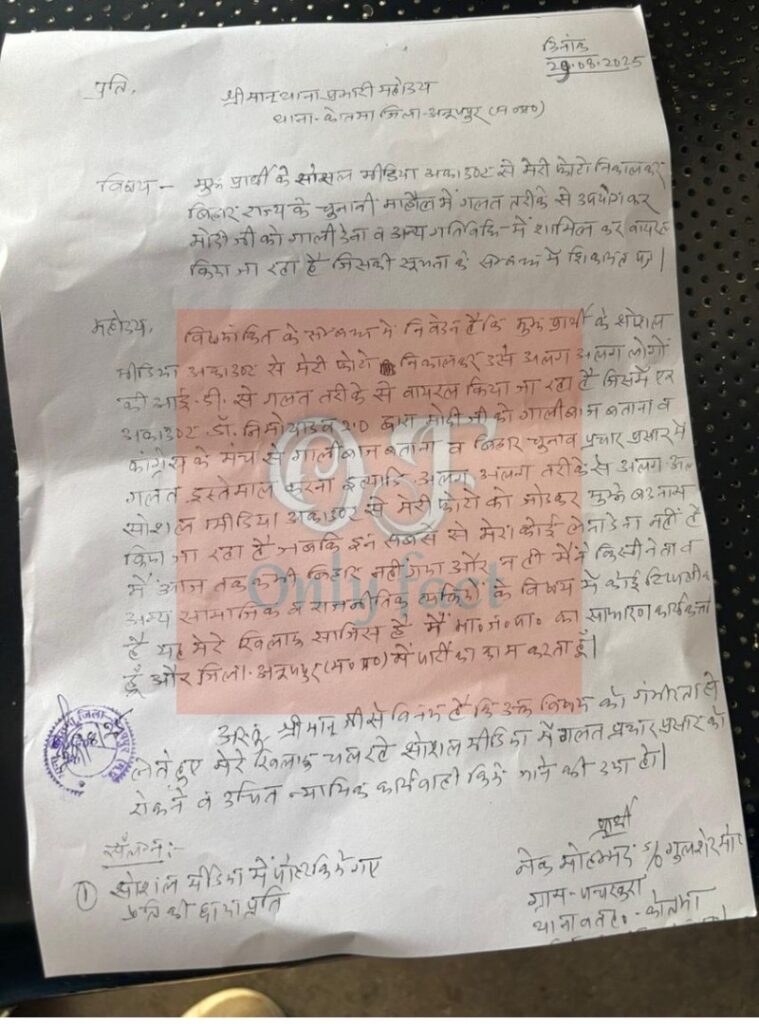 दिनांक
29.08.2025
प्रति,
श्रीमान् थाना प्रभारी महोदय
थाना-कोतमा जिला-अनूपपुर (म०प्र०)
विषय- मुझ प्रार्थी के सोसल मीडिया अकाउंट से मेरी फोटो निकालकर
बिहार राज्य के चुनावी माहौल में गलत तरीके से उपयोग कर
मोदी जी को गाली देना व अन्य गतिविधि में शामिल कर वायरल
किया जा रहा है जिसकी सूचना के सम्बन्ध में शिकायत पत्र।
महोदय,
विषयांकित के सम्बन्ध में निवेदन है कि मुझ प्रार्थी के शोसल
मीडिया अकाउंट से मेरी फोटो निकालकर उसे अलग अलग लोगों
की आई.डी. से गलत तरीके से वायरल किया जा रहा है जिसमें एक
अकाउंट डॉ. निमो यादव 2.0 द्वारा मोदी जी को गालीबाज बताना व
कांग्रेस के मंच से गालीबाज बताना व बिहार चुनाव प्रचार प्रसार में
गलत इस्तेमाल करना इत्यादि अलग अलग तरीके से अलग अलग
सोशल मीडिया अकाउंट से मेरी फोटो को जोडकर मुझे बदनाम
किया जा रहा है जबकि इन सबसे से मेरा कोई लेना देना नहीं है
मैं आज तक कभी बिहार नहीं गया और न ही मैंने किसी नेता व
अन्य सामाजिक व राजनीतिक व्यक्ति के विषय में कोई टिप्पणी की
है यह मेरे खिलाफ साजिस है मैं भा०ज०पा० का साधारण कार्यकर्ता
हूँ और जिला-अनूपपुर (म०प्र०) में पार्टी का काम करता हूँ।
अस्तु श्रीमान जी से विनय है कि उक्त विषय को गंभीरता से
लेते हुए मेरे खिलाफ चल रहे सोशल मीडिया में गलत प्रचार प्रसार को
रोकने व उचित न्यायिक कार्यवाही किये जाने की दया हो।
संलग्न:-
① शोशल मीडिया में पोस्ट किये गए
प्रति की छाया प्रति
प्रार्थी
नेक मोहम्मद S/o गुलशेर मो०
ग्राम-पचखुरा
थाना व तह०-कोतमा
OF
Only fact